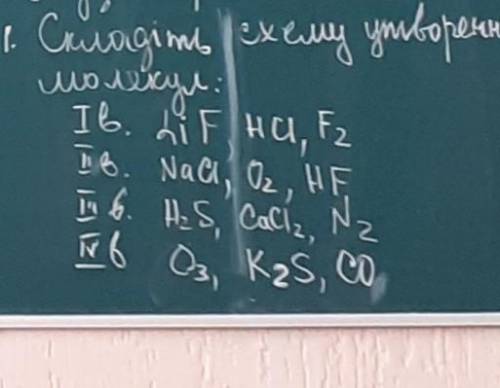 1. Складіть схему утворенн
молекул:
I в. LiF, HCl, F₂
II в. NaCl, O₂, HF
III в. H₂S, CaCl₂, N₂
IV в O₃, K₂S, CO